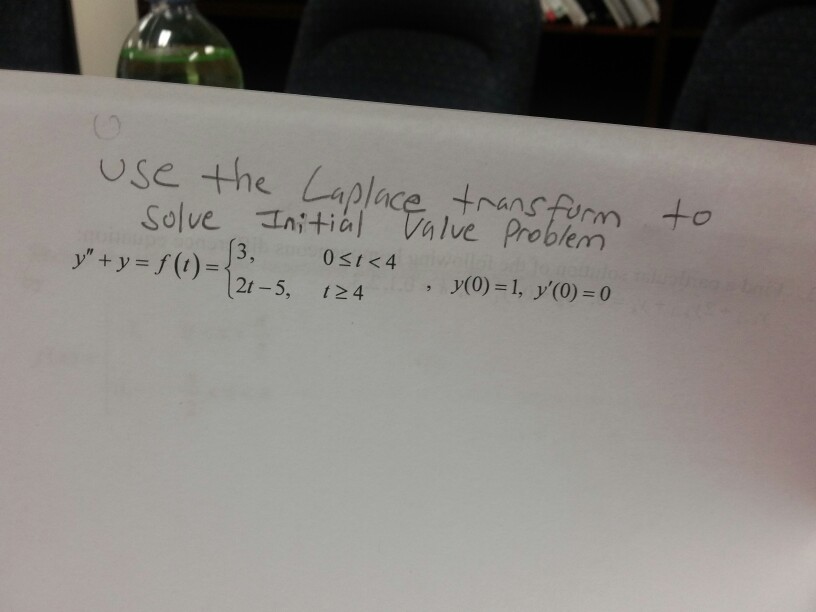 Use the Laplace transform to
solve Initial Value Problem
y" + y = f(t) = {3, 0 ≤ t < 4
{2t − 5, t ≥ 4 , y(0) = 1, y'(0) = 0